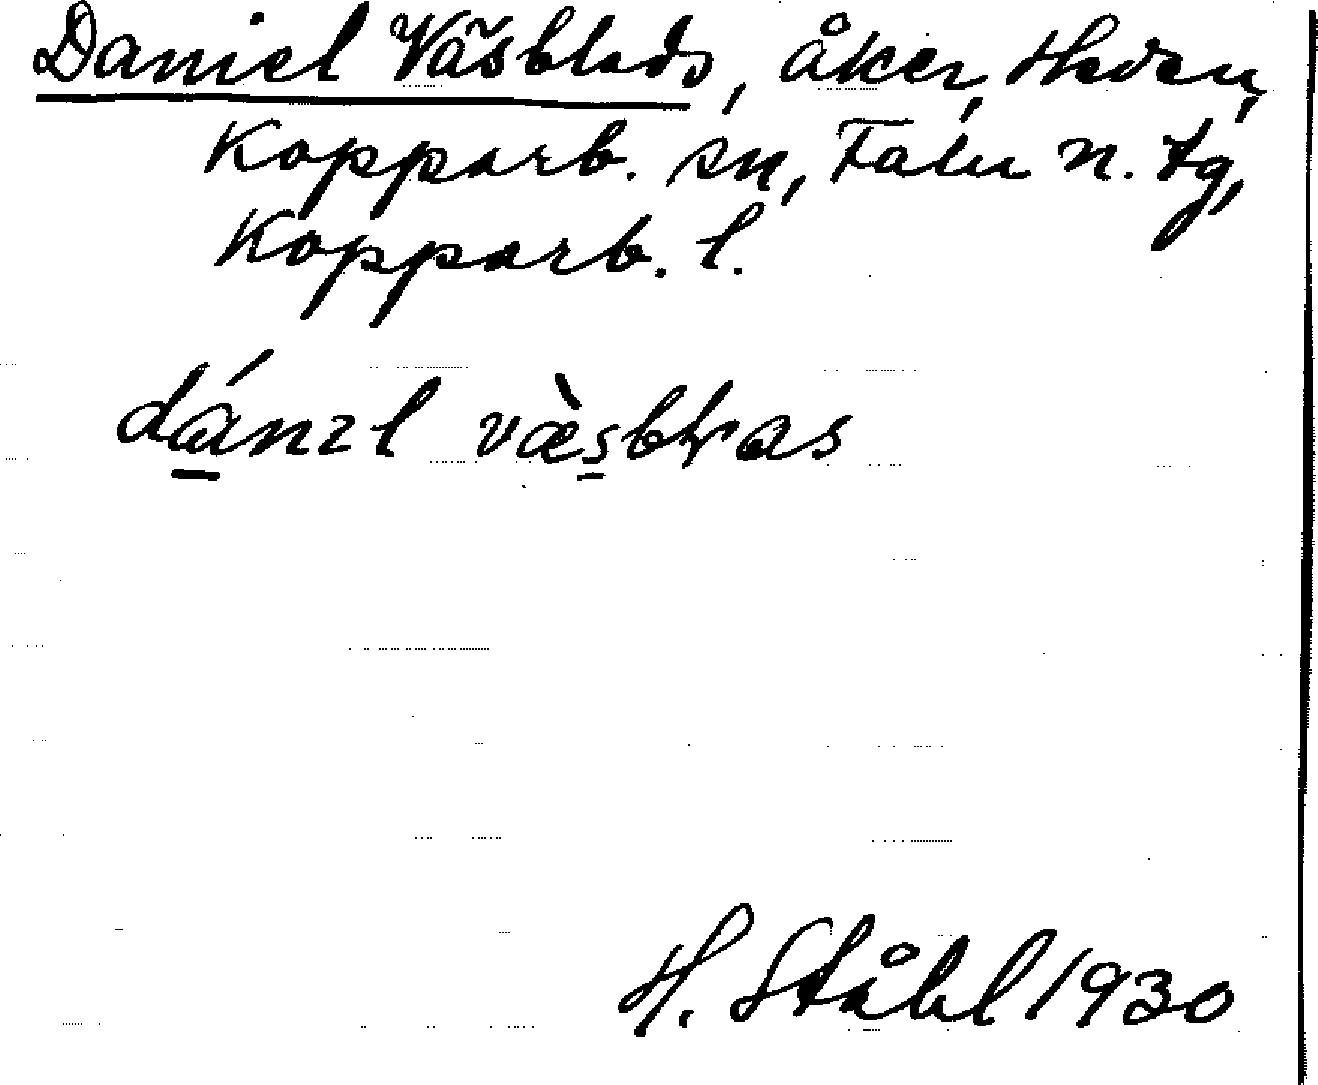 Daniel Väsblads, åker, Heden,
Kopparb. sn, Falu n. tg,
Kopparb. l.
dánıl
H. Ståhl 1930